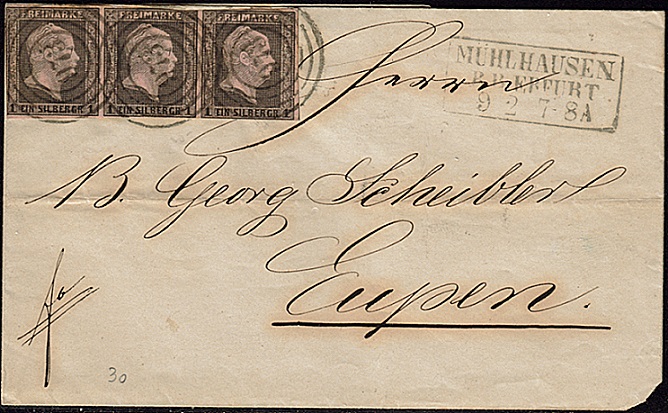 FREIMARKE FREIMARKE FREIMARKE
1 EIN SILBERGR. 1 1 EIN SILBERGR. 1 1 EIN SILBERGR. 1
MÜHLHAUSEN
R.B. ERFURT
9 2 7-8A
Herrn
B. Georg Scheibler
Eupen.
fo
30